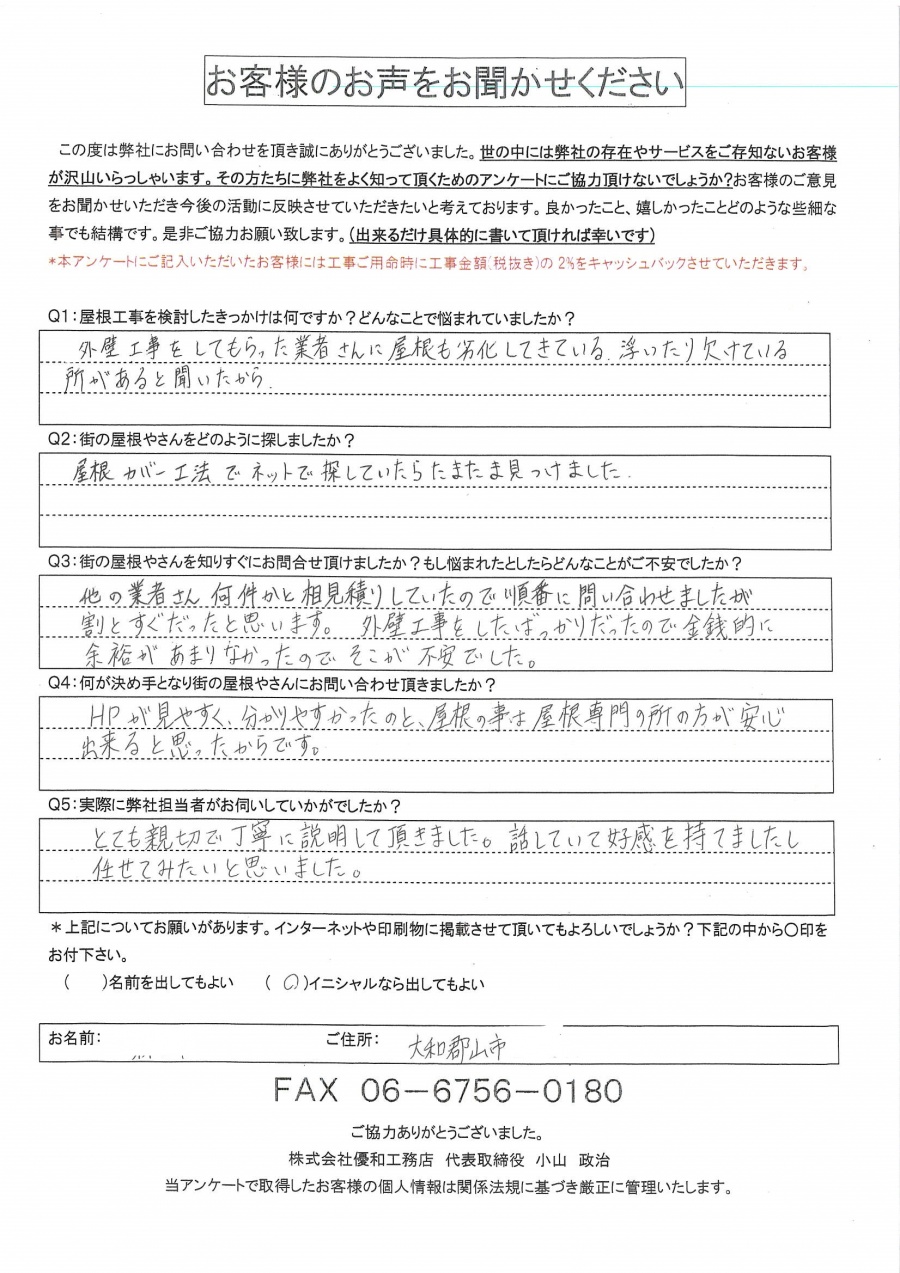 お客様のお声をお聞かせください
この度は弊社にお問い合わせを頂き誠にありがとうございました。世の中には弊社の存在やサービスをご存知ないお客様
が沢山いらっしゃいます。その方たちに弊社をよく知って頂くためのアンケートにご協力頂けないでしょうか?お客様のご意見
をお聞かせいただき今後の活動に反映させていただきたいと考えております。良かったこと、嬉しかったことどのような些細な
事でも結構です。是非ご協力お願い致します。(出来るだけ具体的に書いて頂ければ幸いです)
*本アンケートにご記入いただいたお客様には工事ご用命時に工事金額(税抜き)の 2%をキャッシュバックさせていただきます。
Q1:屋根工事を検討したきっかけは何ですか?どんなことで悩まれていましたか?
外壁工事をしてもらった業者さんに屋根も劣化してきている、浮いたり欠けている
所があると聞いたから.
Q2:街の屋根やさんをどのように探しましたか?
屋根カバー工法でネットで探していたらたまたま見つけました.
Q3:街の屋根やさんを知りすぐにお問合せ頂けましたか?もし悩まれたとしたらどんなことがご不安でしたか?
他の業者さん何件かと相見積りしていたので順番に問い合わせましたが
割とすぐだったと思います。 外壁工事をしたばっかりだったので金銭的に
余裕があまりなかったのでそこが不安でした。
Q4:何が決め手となり街の屋根やさんにお問い合わせ頂きましたか?
HPが見やすく、分かりやすかったのと、屋根の事は屋根専門の所の方が安心
出来ると思ったからです。
Q5:実際に弊社担当者がお伺いしていかがでしたか?
とても親切で丁寧に説明して頂きました。話していて好感を持てましたし
任せてみたいと思いました。
*上記についてお願いがあります。インターネットや印刷物に掲載させて頂いてもよろしいでしょうか?下記の中から〇印を
お付下さい。
( )名前を出してもよい (〇)イニシャルなら出してもよい
お名前: ご住所: 大和郡山市
FAX 06-6756-0180
ご協力ありがとうございました。
株式会社優和工務店 代表取締役 小山 政治
当アンケートで取得したお客様の個人情報は関係法規に基づき厳正に管理いたします。